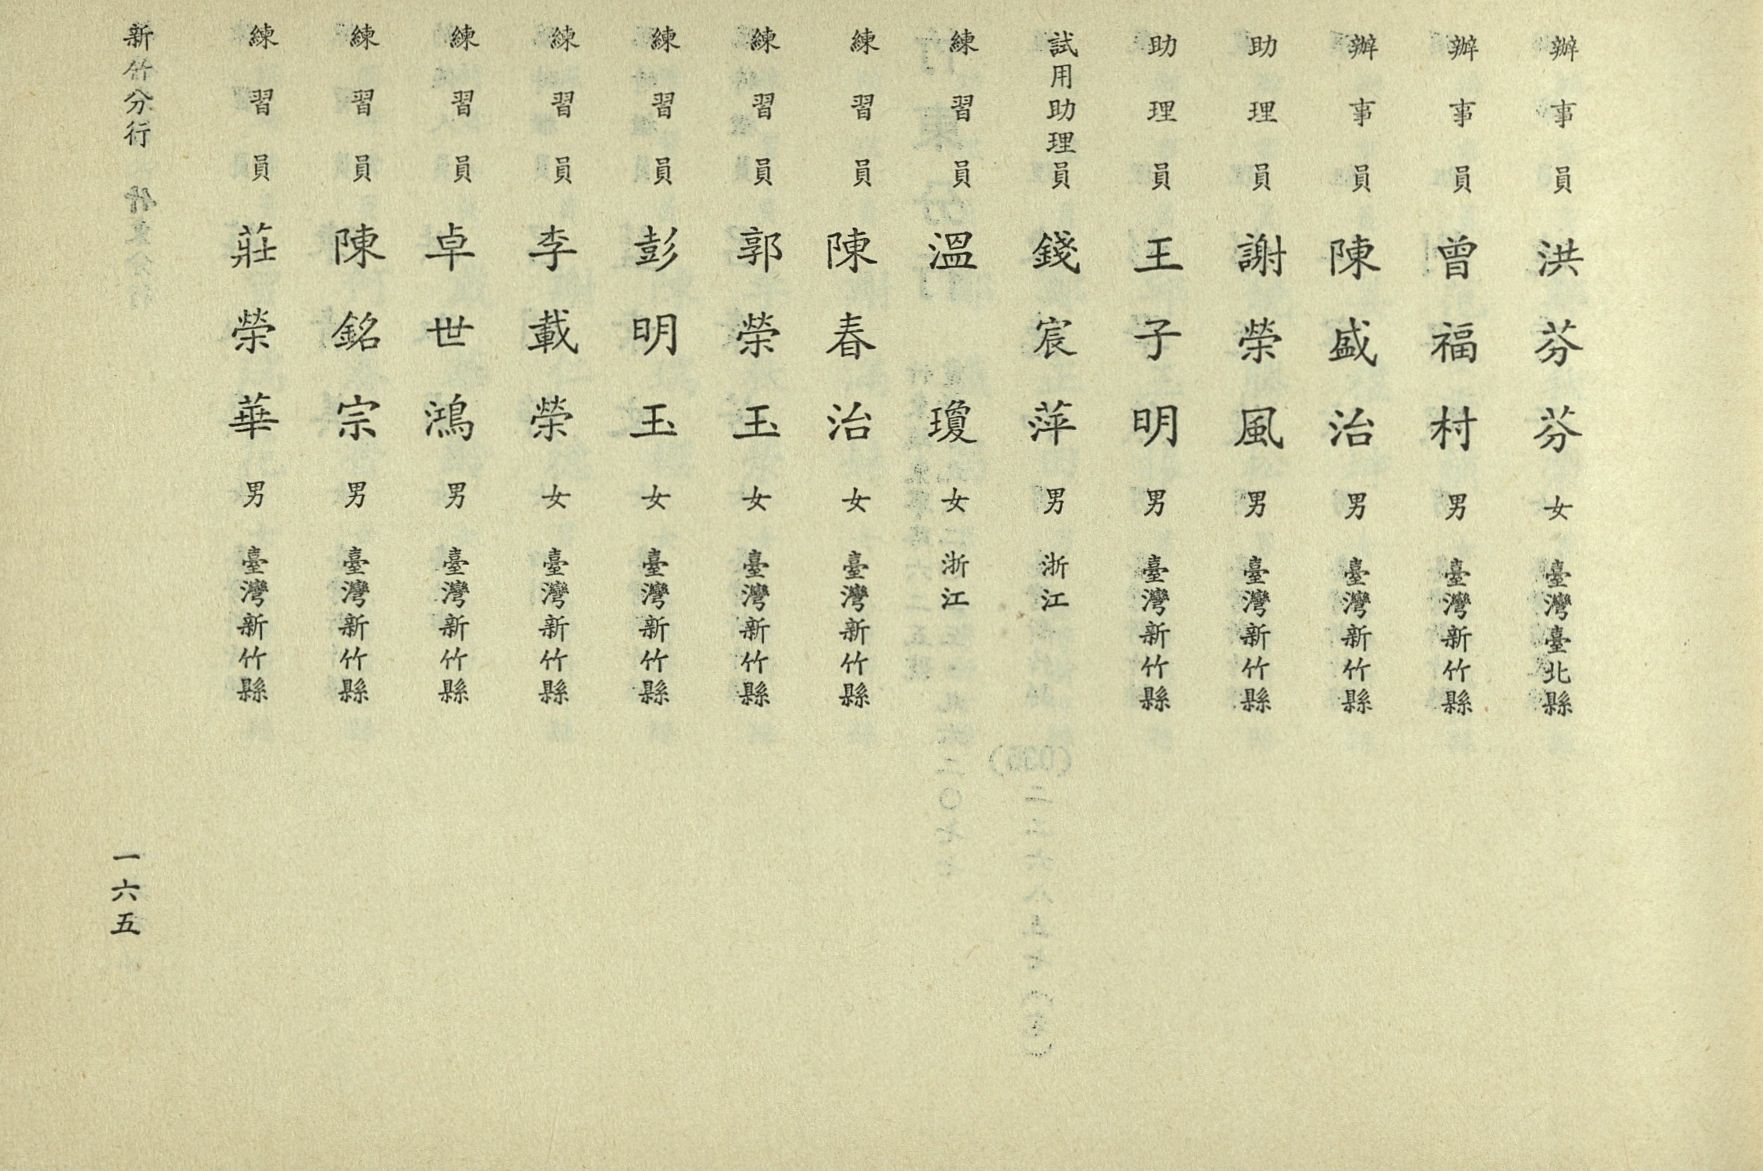 辦事員 洪芬芬 女 臺灣臺北縣
辦事員 曾福村 男 臺灣新竹縣
辦事員 陳盛治 男 臺灣新竹縣
助理員 謝榮風 男 臺灣新竹縣
助理員 王子明 男 臺灣新竹縣
試用助理員 錢宸萍 男 浙江
練習員 溫瓊 女 浙江
練習員 陳春治 女 臺灣新竹縣
練習員 郭榮玉 女 臺灣新竹縣
練習員 彭明玉 女 臺灣新竹縣
練習員 李載榮 女 臺灣新竹縣
練習員 卓世鴻 男 臺灣新竹縣
練習員 陳銘宗 男 臺灣新竹縣
練習員 莊榮華 男 臺灣新竹縣
新竹分行
一六五